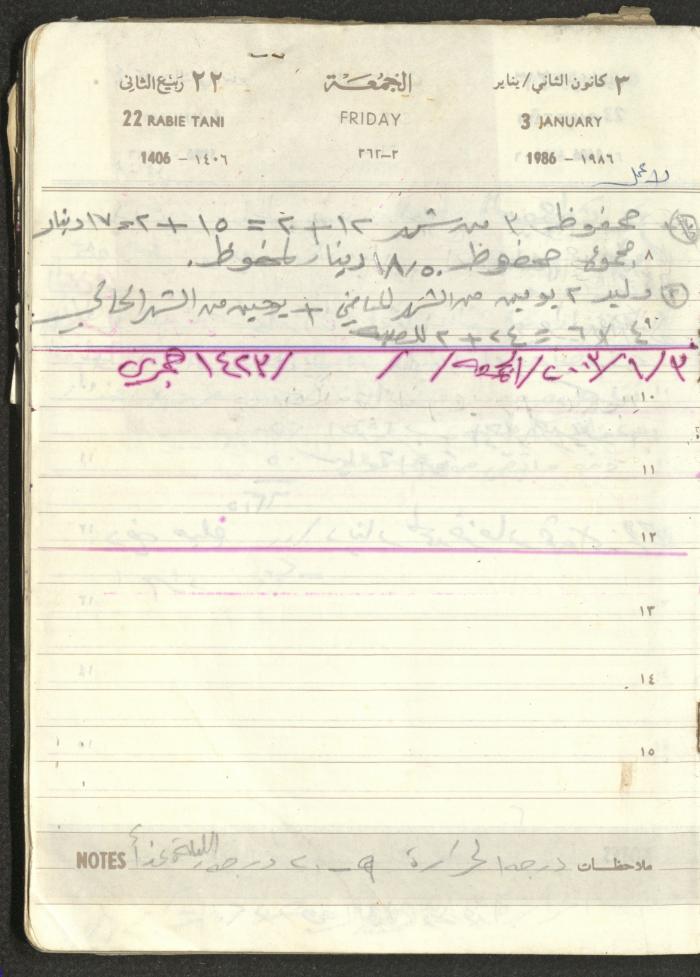 ٣ كانون الثاني/يناير الجمعة ٢٢ ربيع الثاني
3 JANUARY FRIDAY 22 RABIE TANI
1986 – ١٩٨٦ ٣٦٢–٣ 1406 – ١٤٠٦
لا عمل
محفوظ ٣ من شهر ١٢ + ٢ = ١٥ + ٢ = ١٧ دينار
٨ مجموع محفوظ ١٨/٥٠٠ دينار لمحفوظ.
٢ وليد ٢ يومين من الشهر الماضي + يومين من الشهر الحالي
٩ ٤ × ٦ = ٢٤ + ٢
٣/١/٢٠٠٣/الجمعة/ / /١٤٢٣ هجري
١٠
١١
١٢
١٣
١٤
١٥
ملاحظات درجة الحرارة ٩ – ٢٠ درجة الليلة وغداً NOTES